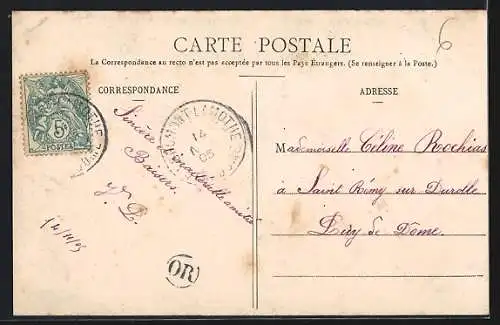 6
CARTE POSTALE
La Correspondance au recto n'est pas acceptée par tous les Pays Étrangers. (Se renseigner à la Poste.)
CORRESPONDANCE
5c
POSTES
MONT-LAMOTHE
14
05
Sincère
Baisers.
V. P.
OR
ADRESSE
Mademoiselle Céline Rochias
à Saint Rémy sur Durolle
Puy de Dome.